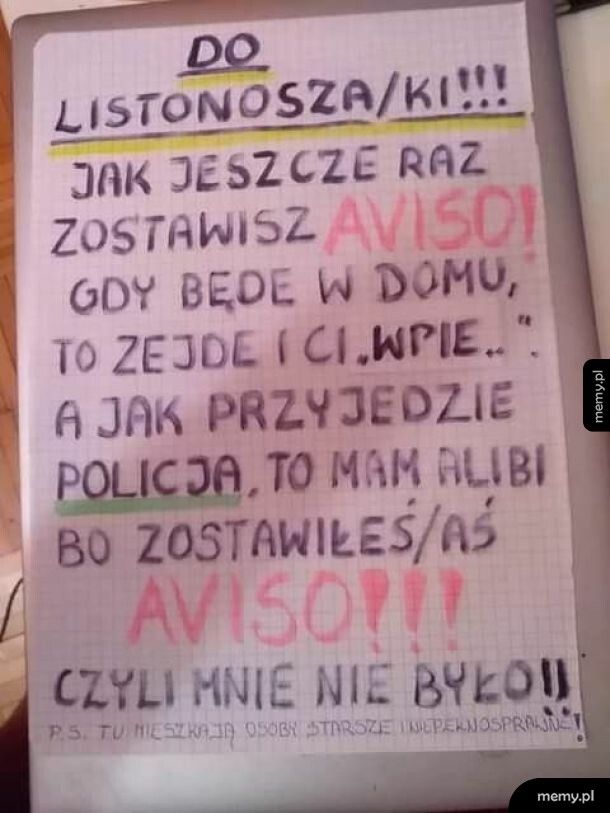 DO
LISTONOSZA/KI!!!
JAK JESZCZE RAZ
ZOSTAWISZ AVISO!
GDY BĘDE W DOMU,
TO ZEJDE I CI „WPIE..".
A JAK PRZYJEDZIE
POLICJA, TO MAM ALIBI
BO ZOSTAWIŁEŚ/AŚ
AVISO!!!
CZYLI MNIE NIE BYŁO!!
P.S. TU MIESZKAJĄ OSOBY STARSZE I NIEPEŁNOSPRAWNE!
memy.pl
memy.pl